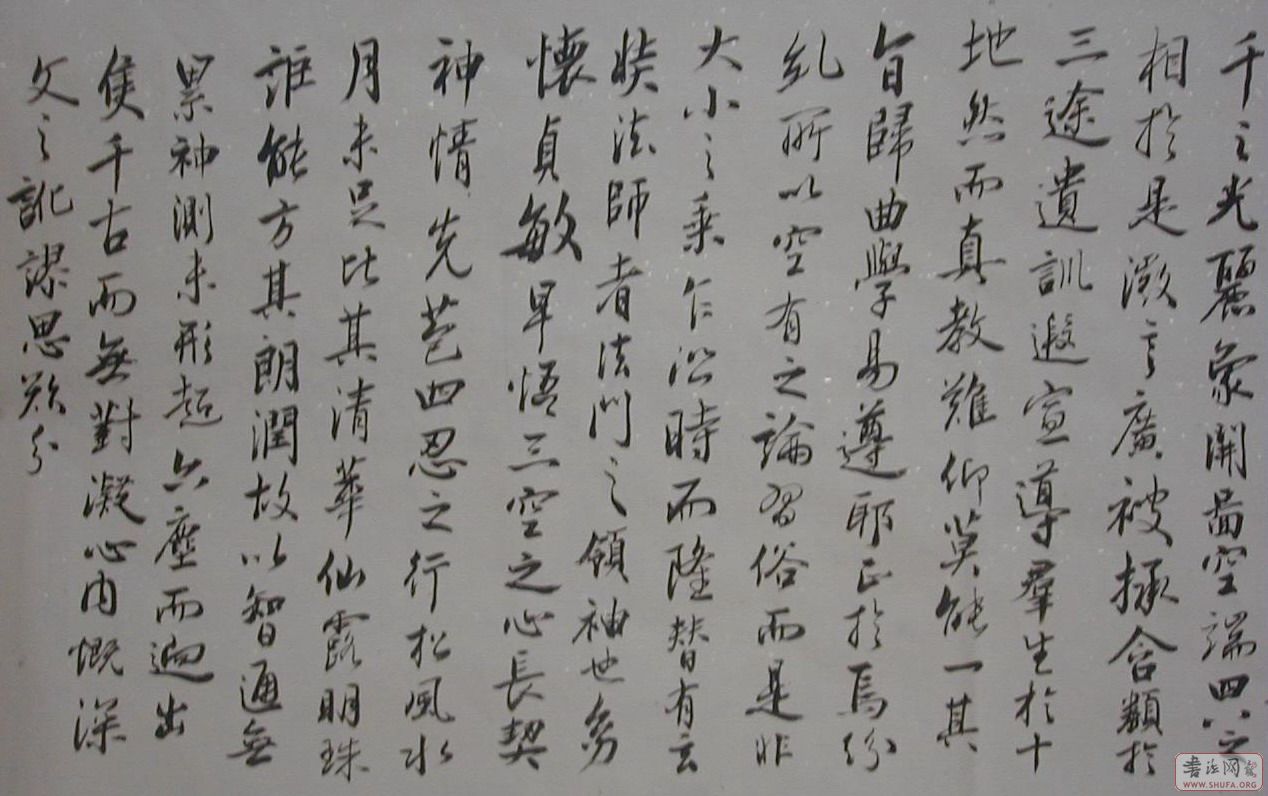 千之光麗象開啚空端四八之
相於是微言廣被拯含類於
三途遺訓遐宣導羣生於十
地然而真教難仰莫能一其
旨歸曲學易遵耶正於焉紛
糺所以空有之論習俗而是非
大小之乘乍沿時而隆替有玄
奘法師者法門之領袖也幼
懷貞敏早悟三空之心長契
神情先苞四忍之行松風水
月未足比其清華仙露明珠
詎能方其朗潤故以智通無
累神測未形超六塵而迥出
隻千古而無對凝心内慨深
文之訛謬思欲分
书法网
WWW.SHUFA.ORG